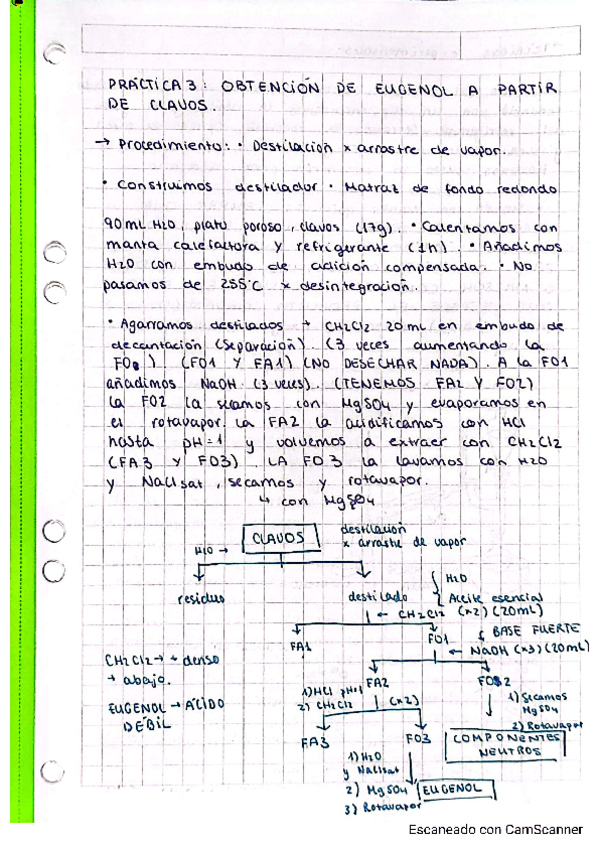 PRÁCTICA 3: OBTENCIÓN DE EUGENOL A PARTIR
DE CLAVOS.
→ Procedimiento: • Destilación x arrastre de vapor.
• Construimos destilador • Matraz de fondo redondo
90mL H2O, plato poroso, clavos (17g). • Calentamos con
manta calefactora y refrigerante (1h). • Añadimos
H2O con embudo de adición compensada. • No
pasamos de 255°C x desintegración.
• Agarramos destilados + CH2Cl2 20mL en embudo de
decantación (separación). (3 veces aumentando la
FO ). (FO1 Y FA1) (NO DESECHAR NADA). A la FO1
añadimos NaOH (3 veces). (TENEMOS FA2 Y FO2)
la FO2 la secamos con MgSO4 y evaporamos en
el rotavapor. La FA2 la acidificamos con HCl
hasta pH=1 y volvemos a extraer con CH2Cl2
(FA3 Y FO3). LA FO3 la lavamos con H2O
y NaCl sat, secamos y rotavapor.
↳ con MgSO4
H2O →
CLAVOS
destilación
x arrastre de vapor
residuo
destilado
{ H2O
Aceite esencial
← CH2Cl2 (x2) (20mL)
FA1
FO1
BASE FUERTE
← NaOH (x3) (20mL)
CH2Cl2 → + denso
→ abajo.
EUGENOL → ÁCIDO
DÉBIL
FA2
1) HCl pH=1
2) CH2Cl2
(x2)
FO2
1) Secamos
MgSO4
2) Rotavapor
COMPONENTES
NEUTROS
FA3
FO3
1) H2O
y NaCl sat
2) MgSO4
3) Rotavapor
EUGENOL
Escaneado con CamScanner